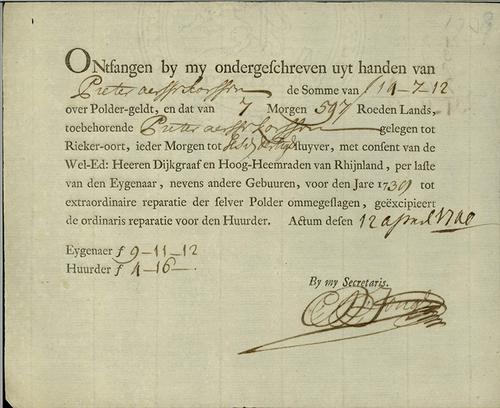 1
ONtfangen by my ondergeschreven uyt handen van
Pieter de Somme van f 14-7-12
over Polder-geldt, en dat van 7 Morgen 597 Roeden Lands,
toebehorende Pieter gelegen tot
Rieker-oort, ieder Morgen tot stuyver, met consent van de
Wel-Ed: Heeren Dijkgraaf en Hoog-Heemraden van Rhijnland, per laste
van den Eygenaer, nevens andere Gebuuren, voor den Jare 1739 tot
extraordinaire reparatie der selver Polder ommegeslagen, geëxcipieert
de ordinaris reparatie voor den Huurder. Actum desen 12 april 1740
Eygenaer f 9-11-12
Huurder f 4-16-
By my Secretaris.